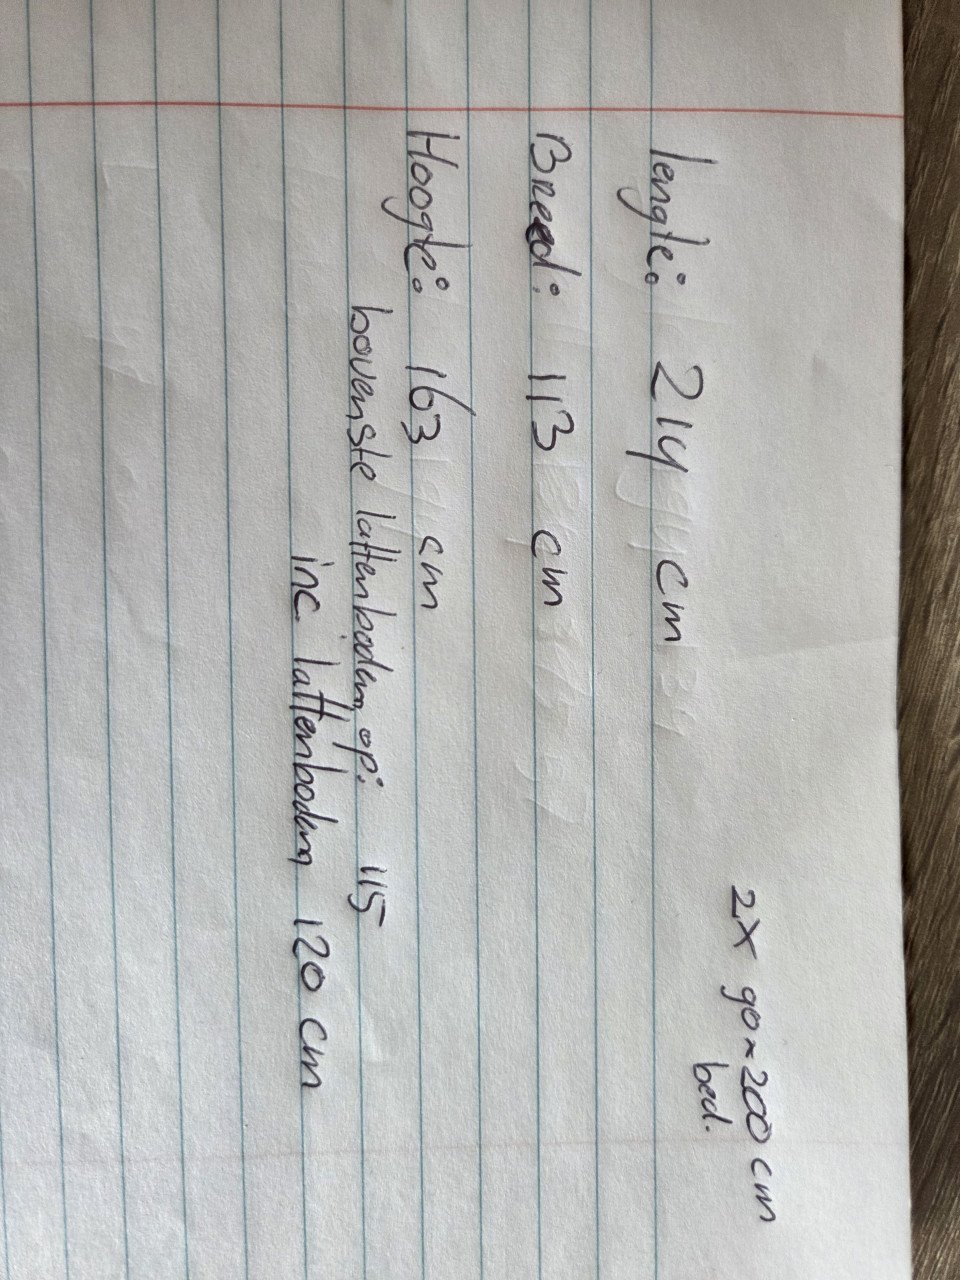 2x 90x200 cm
bed.
lengte: 214 cm
Breed: 113 cm
Hoogte: 163 cm
bovenste lattenbodem op: 115
inc. lattenbodem 120 cm